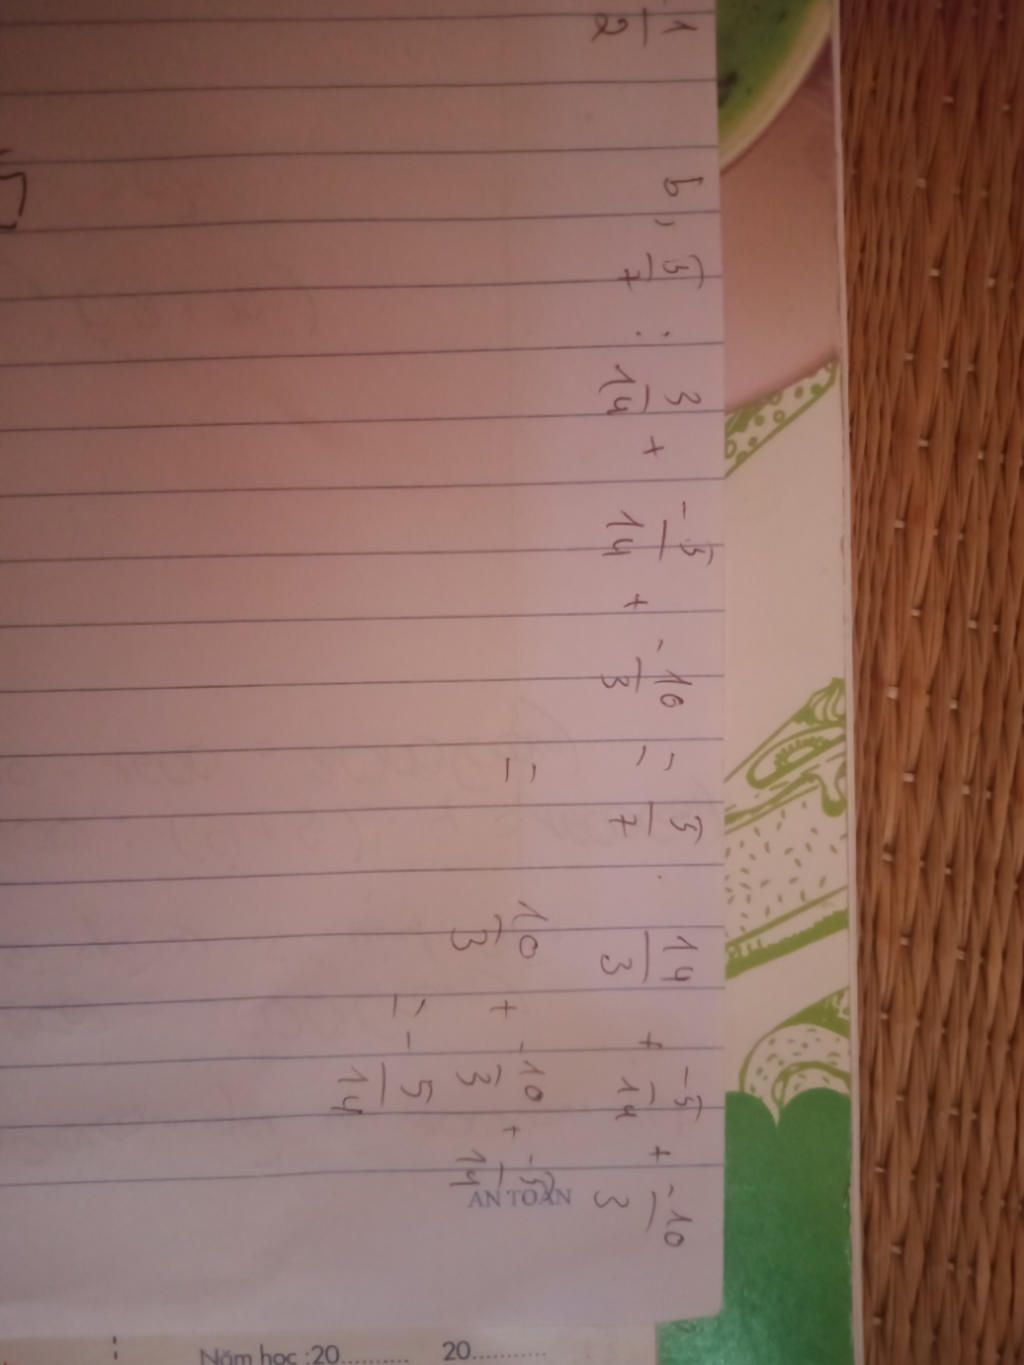 1/2
b, 5/7 : 3/14 + -5/14 + -10/3 = 5/7 . 14/3 + -5/14 + -10/3
= 10/3 + -10/3 + -5/14
= -5/14
AN TOÀN
Năm học :20.......... 20..........